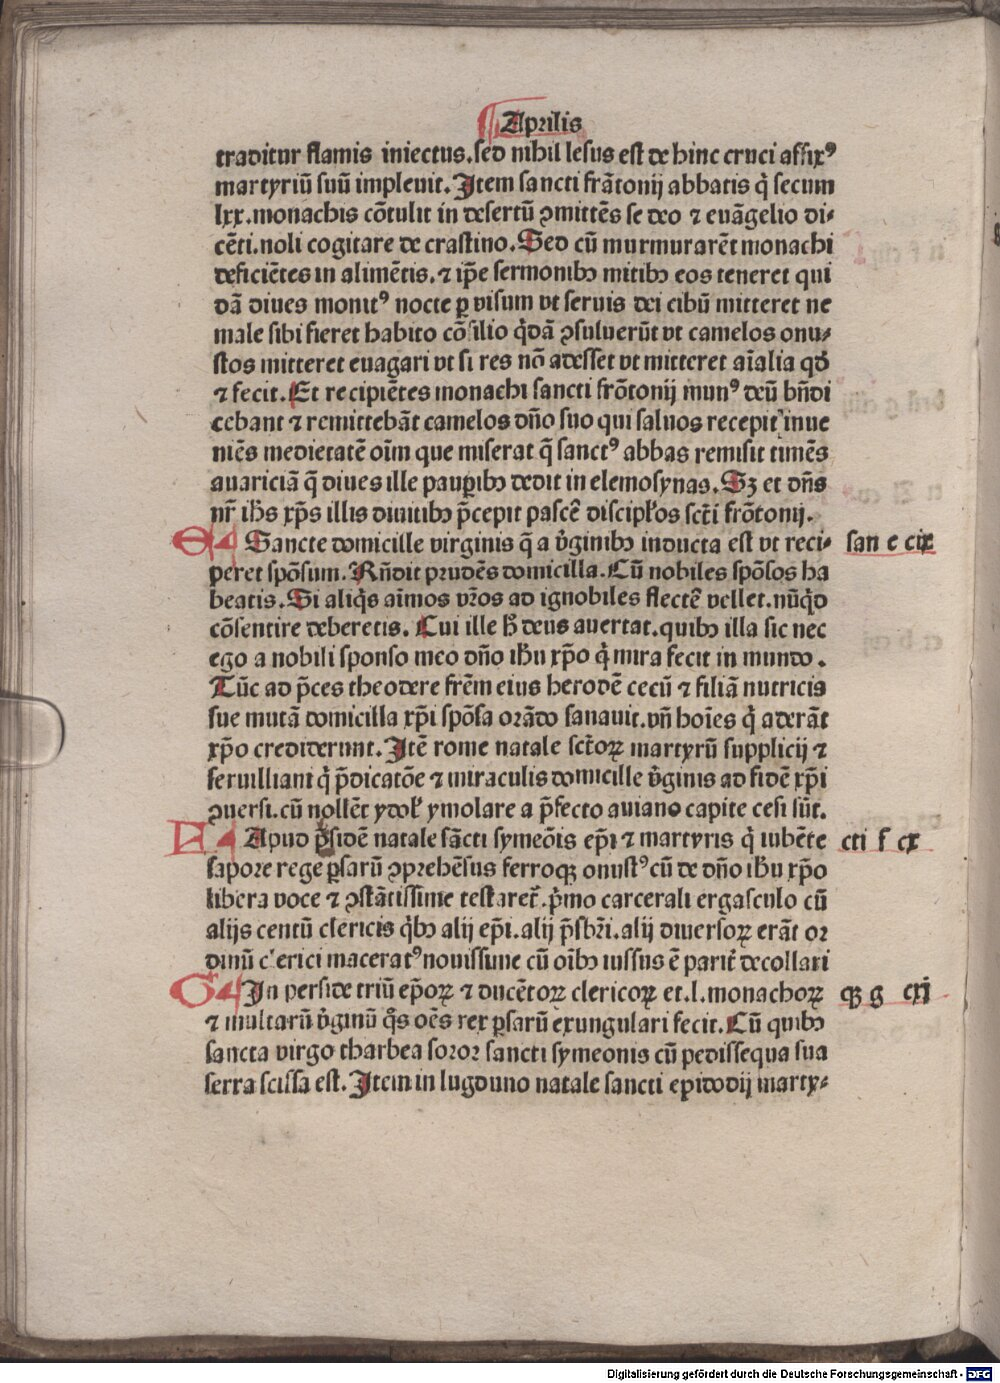 Aprilis
traditur flamis iniectus.sed nihil lesus est de hinc cruci affixꝰ
martyriū suū implevit.Item sancti frātonij abbatis q̇ secum
lxx.monachis cōtulit in desertū ꝯmittēs se deo ⁊ evāgelio di⸗
cēti.noli cogitare de crastino.Sed cū murmurarēt monachi
deficiētes in alimētis.⁊ ip̄e sermonibꝫ mitibꝫ eos teneret qui
dā dives monitꝰ nocte ꝑ visum vt servis dei cibū mitteret ne
male sibi fieret habito cōsilio q̇dā ꝯsuluerūt vt camelos onu⸗
stos mitteret evagari vt si res nō adesset vt mitteret aīalia qđ
⁊ fecit.Et recipiētes monachi sancti frōtonij munꝰ deū bn̄di
cebant ⁊ remittebāt camelos dn̄o suo qui salvos recepit inve
niēs medietatē oīm que miserat q̄ sanctꝰ abbas remisit timēs
avariciā q̄ dives ille pauꝑibꝫ dedit in elemosynas.Sꝫ et dn̄s
nr̄ ih̄s xp̄s illis divitibꝫ p̄cepit pascē discipl̓os sct̄i frōtonij.
Sancte domicille virginis q̄ a v̓ginibꝫ inducta est vt reci⸗ san e cix
peret spōsum.Rn̄dit prudēs domicilla.Cū nobiles spōsos ha
beatis.Si aliq̇s aīmos vr̄os ad ignobiles flectē vellet.nūq̇d
cōsentire deberetis. Cui ille h̄ deus avertat.quibꝫ illa sic nec
ego a nobili sponso meo dn̄o ih̄u xp̄o q̇ mira fecit in mundo.
Tūc ad p̄ces theodere frēm eius herodē cecū ⁊ filiā nutricis
sue mutā domicilla xp̄i spōsa orādo sanavit.vn̄ hoīes q̇ aderāt
xp̄o crediderunt.Itē rome natale sct̄oꝝ martyrū supplicij ⁊
serviliani q̇ p̄dicatōe ⁊ miraculis domicille v̓ginis ad fidē xp̄i
ꝯversi.cū nollēt ydol̓ ymolare a p̄fecto aviano capite cesi sūt.
Apud p̄sidē natale sācti symeōis ep̄i ⁊ martyris q̇ iubēte cti f cx
sapore rege ꝑsarū ꝯprehēsus ferroqꝫ onustꝰ cū de dn̄o ih̄u xp̄o
libera voce ⁊ ꝯstātissime testaret̓.p̓mo carcerali ergasculo cū
alijs centū clericis q̇bꝫ alij ep̄i.alij p̄sbr̄i.alij diversoꝝ erāt or
dinū clerici maceratꝰ novissime cū oībꝫ iussus ē parit̓ decollari
In perside triū ep̄oꝝ ⁊ ducētoꝝ clericoꝝ et.l.monachoꝝ qꝫ g cxi
⁊ multarū v̓ginū q̊s oēs rex ꝑsarū exungulari fecit.Cū quibꝫ
sancta virgo tharbea soror sancti symeonis cū pedissequa sua
serra scissa est.Item in lugduno natale sancti epidodij marty⸗
Digitalisierung gefördert durch die Deutsche Forschungsgemeinschaft - DFG